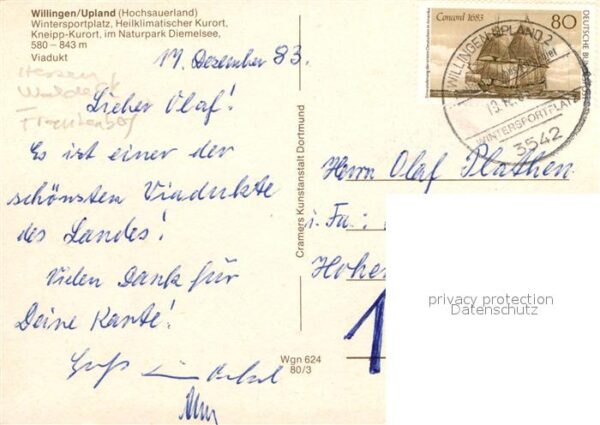 Willingen/Upland (Hochsauerland)
Wintersportplatz, Heilklimatischer Kurort,
Kneipp-Kurort, im Naturpark Diemelsee,
580 – 843 m
Viadukt
Hessen
17. Dezember 83.
Lieber Olaf!
Es ist einer der
schönsten Viadukte
des Landes!
Vielen Dank für
Deine Karte!
Gruß
Wgn 624
80/3
Cramers Kunstanstalt Dortmund
Concord 1683
80
DEUTSCHE BUNDESPOST
WILLINGEN, UPLAND 2
WINTERSPORTPLATZ
3542
Herrn Olaf Plathen
i. Fa.:
Hohen
1
privacy protection
Datenschutz